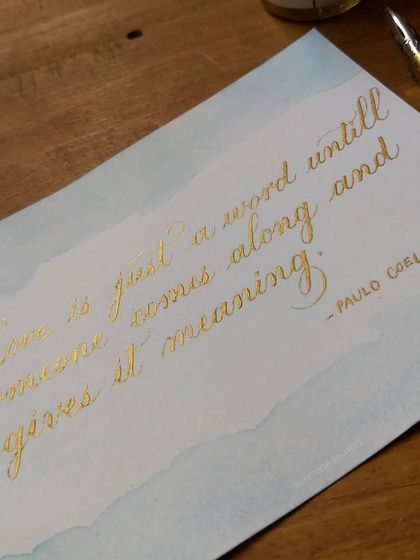 Love is just a word untill
someone comes along and
gives it meaning.
-PAULO COEL